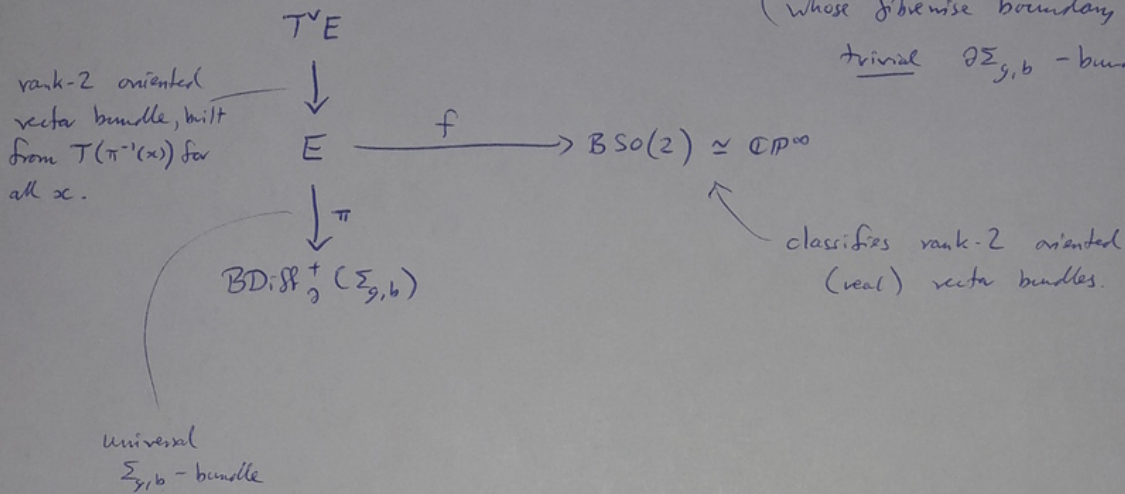 (whose fibrewise boundary
trivial ∂Σ_{g,b} - bun
T^vE
rank-2 oriented
vector bundle, built
from T(π⁻¹(x)) for
all x.
E
f
BSO(2) ≃ ℂP^∞
π
classifies rank-2 oriented
(real) vector bundles.
BDiff^+_∂(Σ_{g,b})
universal
Σ_{g,b} - bundle